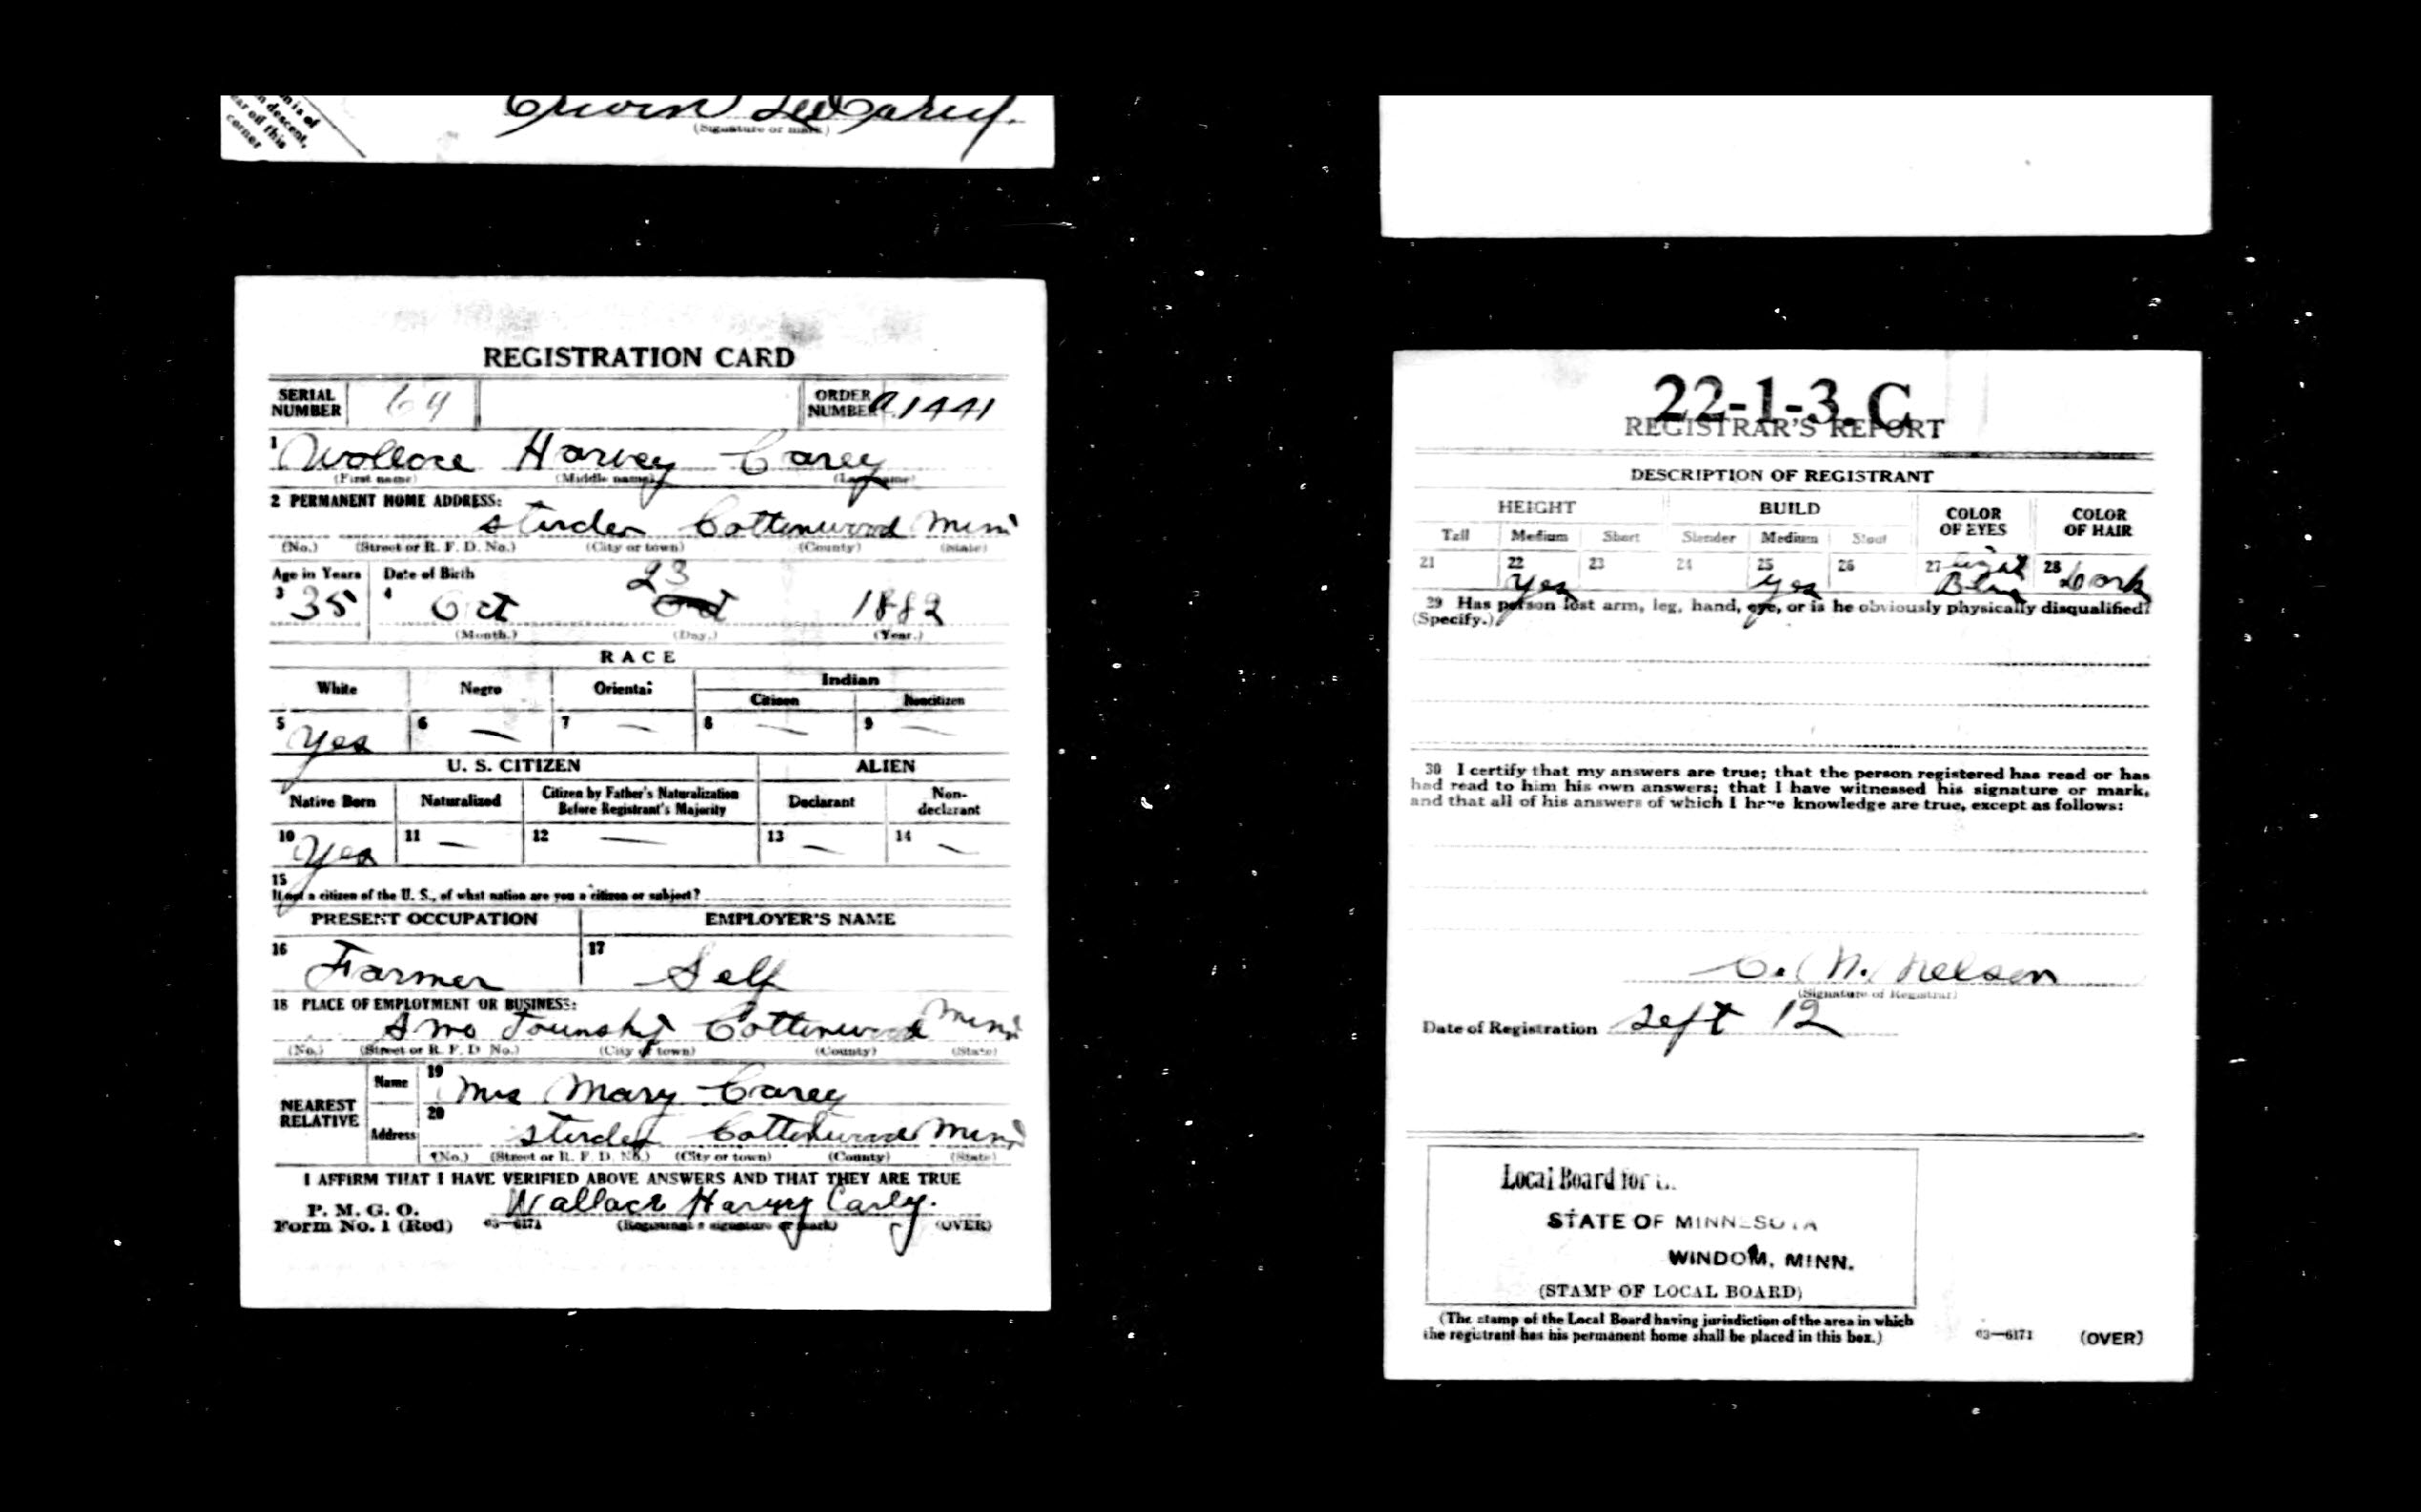 n is of
n descent,
ar off this
corner
Erwin Lee Carey.
(Signature or mark)
REGISTRATION CARD
SERIAL NUMBER 64 ORDER NUMBER A1441
1 Wallace Harvey Carey
(First name) (Middle name) (Last name)
2 PERMANENT HOME ADDRESS:
Storden Cottonwood Minn
(No.) (Street or R. F. D. No.) (City or town) (County) (State)
Age in Years Date of Birth
3 35 4 Oct 23 1882
(Month.) (Day.) (Year.)
RACE
White Negro Oriental Indian
Citizen Noncitizen
5 Yes 6 — 7 — 8 — 9 —
U. S. CITIZEN ALIEN
Native Born Naturalized Citizen by Father's Naturalization Before Registrant's Majority Declarant Non-declarant
10 Yes 11 — 12 — 13 — 14 —
15
If not a citizen of the U. S., of what nation are you a citizen or subject?
PRESENT OCCUPATION EMPLOYER'S NAME
16 Farmer 17 Self
18 PLACE OF EMPLOYMENT OR BUSINESS:
Amo Township Cottonwood Minn
(No.) (Street or R. F. D. No.) (City or town) (County) (State)
NEAREST RELATIVE
Name 19 Mrs Mary Carey
Address 20 Storden Cottonwood Minn
(No.) (Street or R. F. D. No.) (City or town) (County) (State)
I AFFIRM THAT I HAVE VERIFIED ABOVE ANSWERS AND THAT THEY ARE TRUE
P. M. G. O.
Form No. 1 (Red) 03—6171 Wallace Harvey Carey.
(Registrant's signature or mark) (OVER)
22-1-3. C
REGISTRAR'S REPORT
DESCRIPTION OF REGISTRANT
HEIGHT BUILD COLOR OF EYES COLOR OF HAIR
Tall Medium Short Slender Medium Stout
21 22 Yes 23 24 25 Yes 26 27 Light Blue 28 Dark
29 Has person lost arm, leg, hand, eye, or is he obviously physically disqualified?
(Specify.)
30 I certify that my answers are true; that the person registered has read or has
had read to him his own answers; that I have witnessed his signature or mark,
and that all of his answers of which I have knowledge are true, except as follows:
C. N. Nelson
(Signature of Registrar)
Date of Registration Sept 12
Local Board for
STATE OF MINNESOTA
WINDOM, MINN.
(STAMP OF LOCAL BOARD)
(The stamp of the Local Board having jurisdiction of the area in which
the registrant has his permanent home shall be placed in this box.)
03—6171 (OVER)